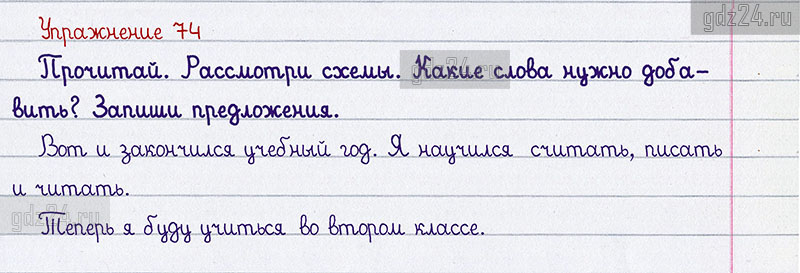 gdz24.ru
Упражнение 74
Прочитай. Рассмотри схемы. Какие слова нужно доба-
вить? Запиши предложения.
Вот и закончился учебный год. Я научился считать, писать
и читать.
gdz24.ru
Теперь я буду учиться во втором классе.